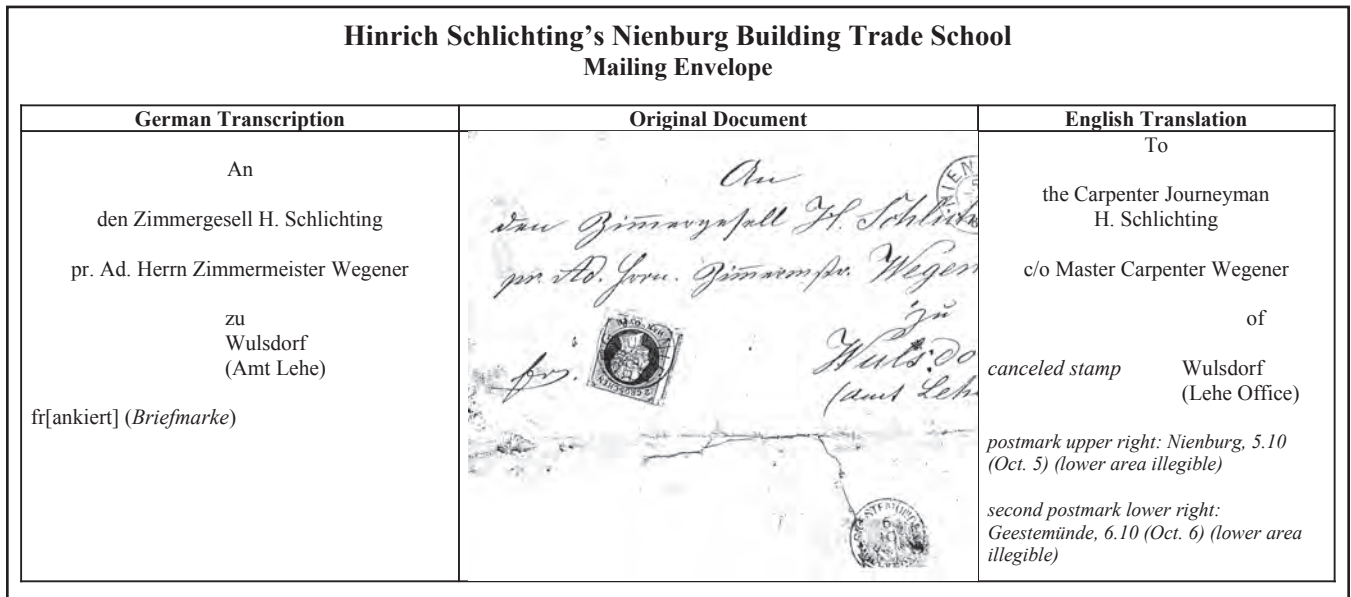 Hinrich Schlichting's Nienburg Building Trade School
Mailing Envelope
German Transcription
An
den Zimmergesell H. Schlichting
pr. Ad. Herrn Zimmermeister Wegener
zu
Wulsdorf
(Amt Lehe)
fr[ankiert] (Briefmarke)
Original Document
An
den Zimergesell H. Schlicht
pr. Ad. Herrn. Zimermstr. Wegen
zu
Wulsdo
(Amt Leh
fr.
NIEN
2 GROSCHEN
GEESTEMÜNDE
6
10
English Translation
To
the Carpenter Journeyman
H. Schlichting
c/o Master Carpenter Wegener
of
canceled stamp Wulsdorf
(Lehe Office)
postmark upper right: Nienburg, 5.10
(Oct. 5) (lower area illegible)
second postmark lower right:
Geestemünde, 6.10 (Oct. 6) (lower area
illegible)